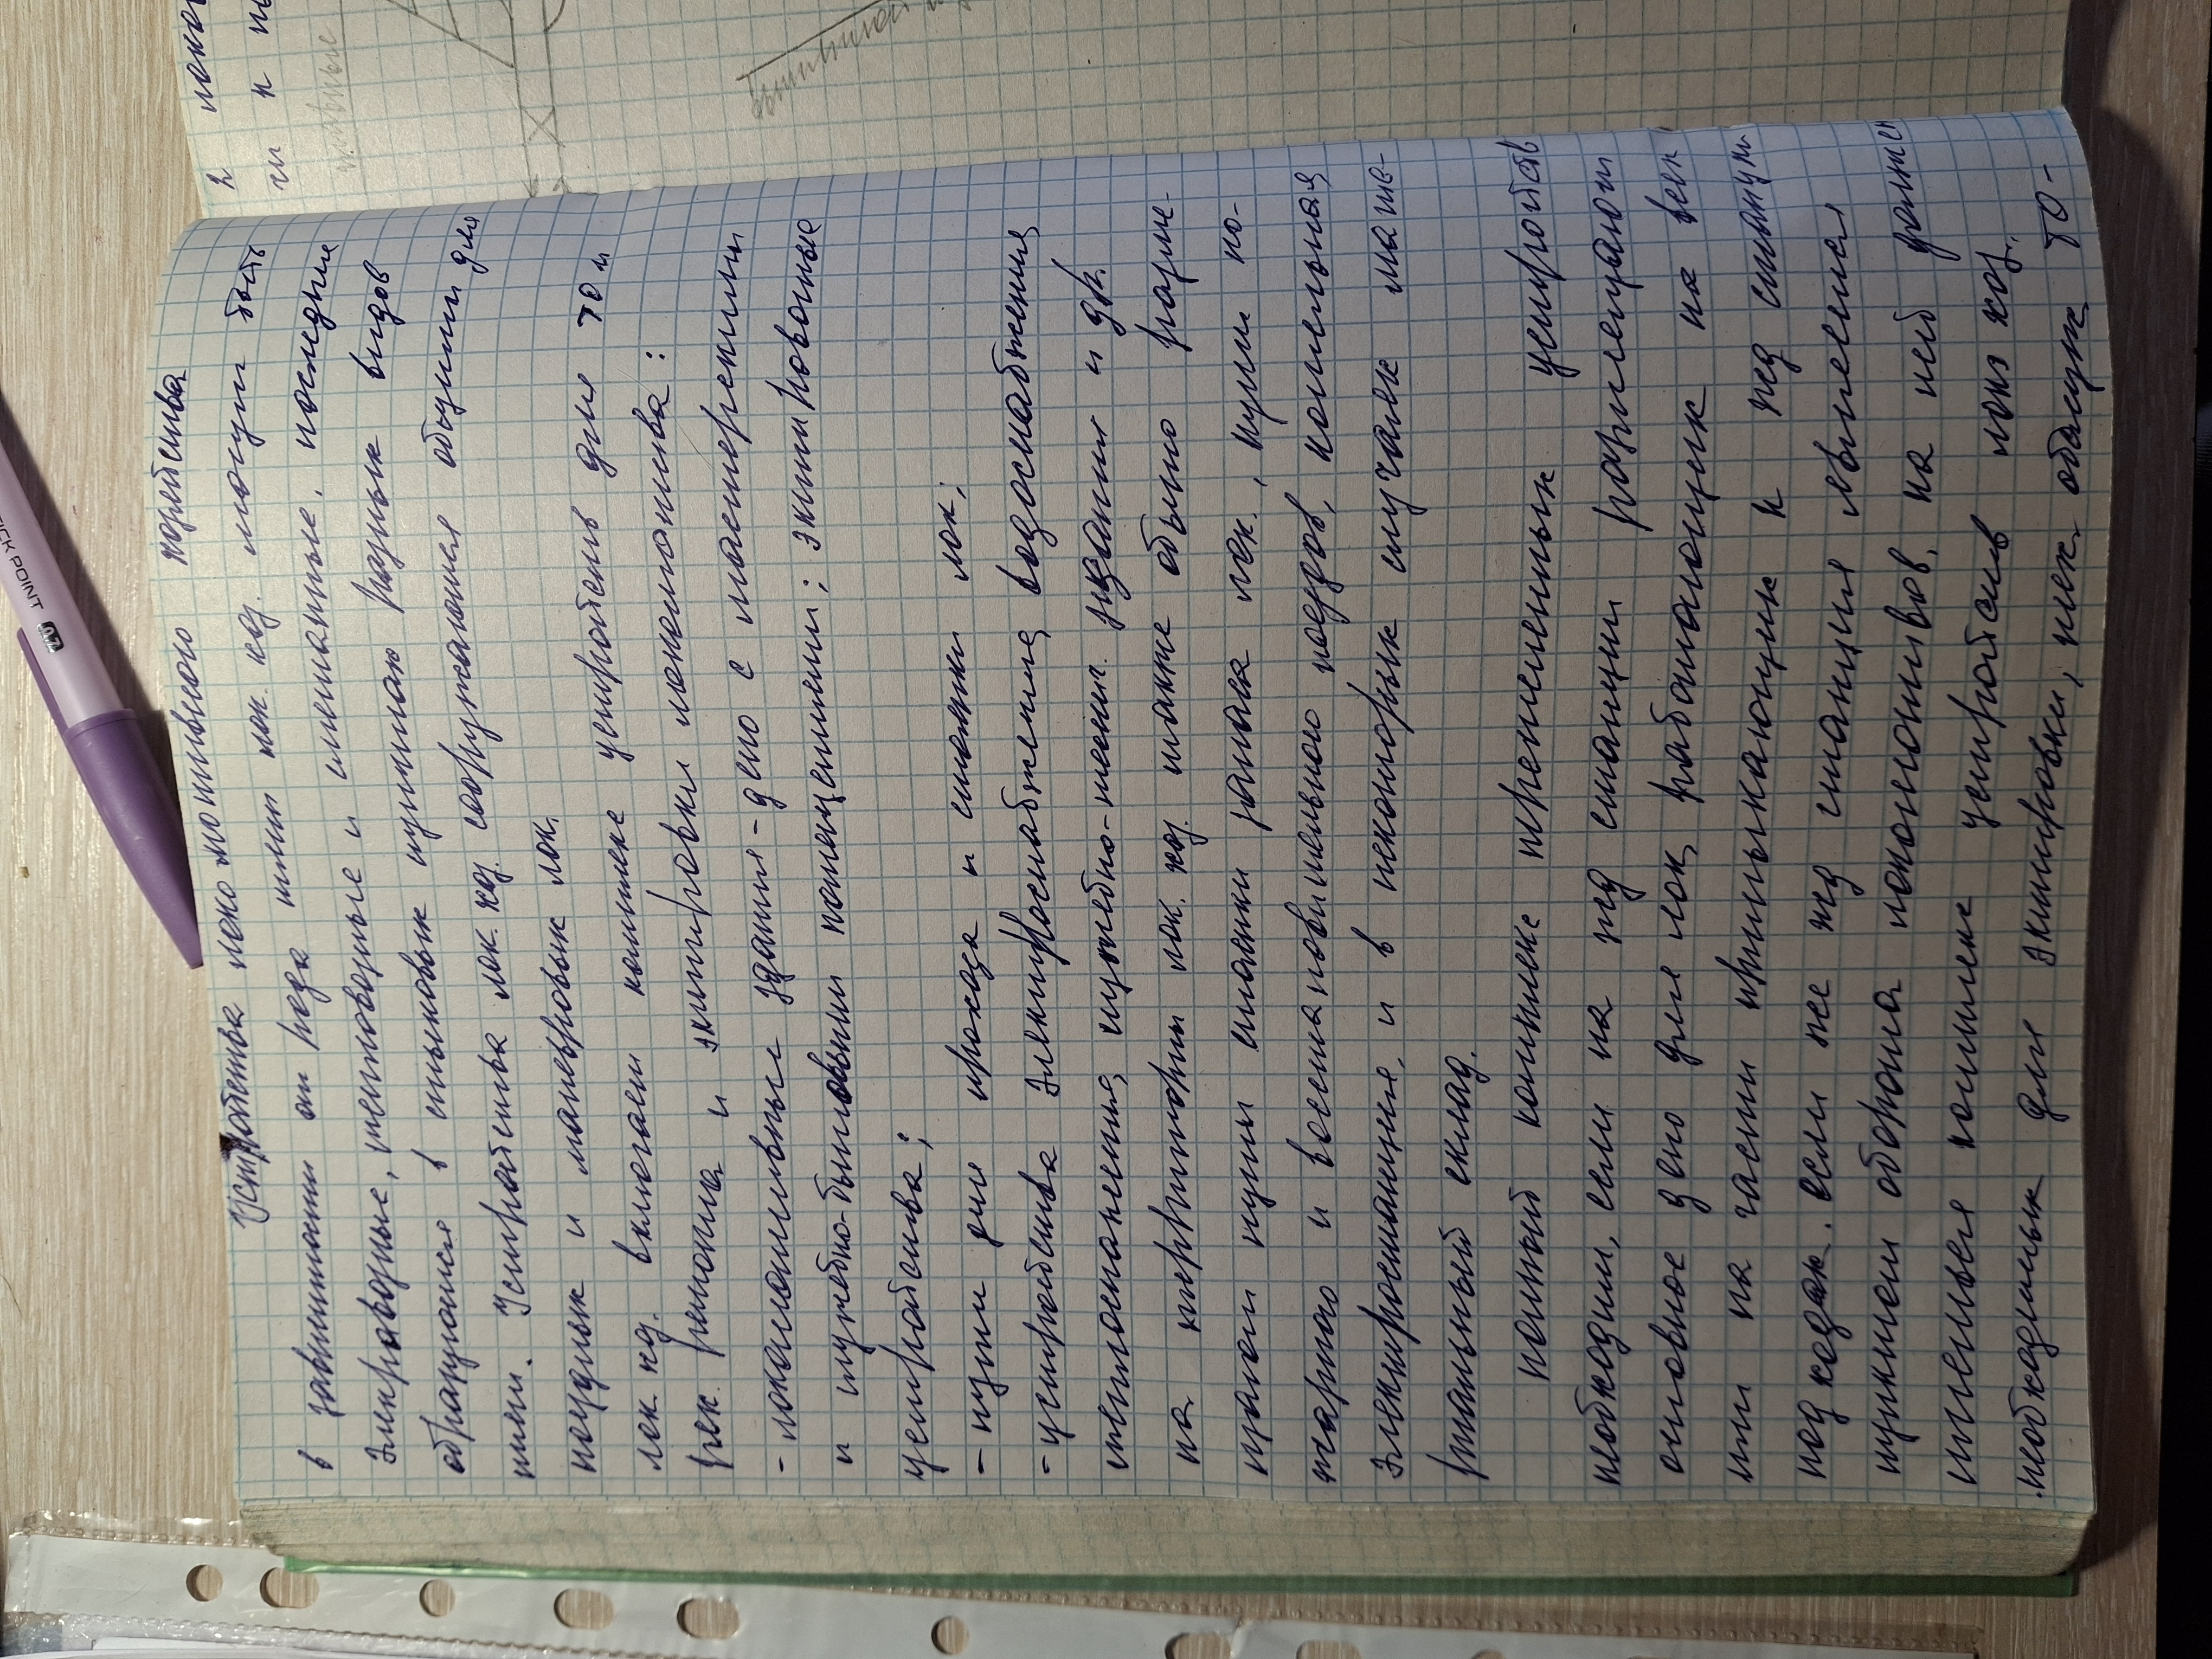 Устройства локомотивного хозяйства
в зависимости от рода тяги лок. хоз. могут быть
электровозные, тепловозные и смешанные. последние
образуются в стыковых пунктах разных видов
тяги. Устройства лок. хоз. сооружаются общими для
поездных и маневровых лок.
лок. хоз. включает комплекс устройств для ТО и
тек. ремонта и экипировки локомотива:
- локомотивные здания - депо с мастерскими
и служебно-бытовыми помещениями; экипировочные
устройства;
- пути для прохода и стоянки лок;
- устройства электроснабжения, водоснабжения
теплоснабжения, служебно-техн. здания и др.
на территории лок. хоз. также обычно разме-
щают пути стоянки запаса лок., пути по-
жарного и восстановительного поездов, котельная
электростанция, и в некоторых случаях мате-
риальный склад.
полный комплекс перечисленных устройств
необходим, если на жд станции размещают
основное депо для лок, работающих на всех
или на части примыкающих к жд станции
подходах. если же жд станция является
пунктом оборота локомотивов, на ней должен
иметься комплекс устройств лок хоз.
необходимых для экипировки, тех. обслуж ТО-
2
XTINDPOINT
0.7